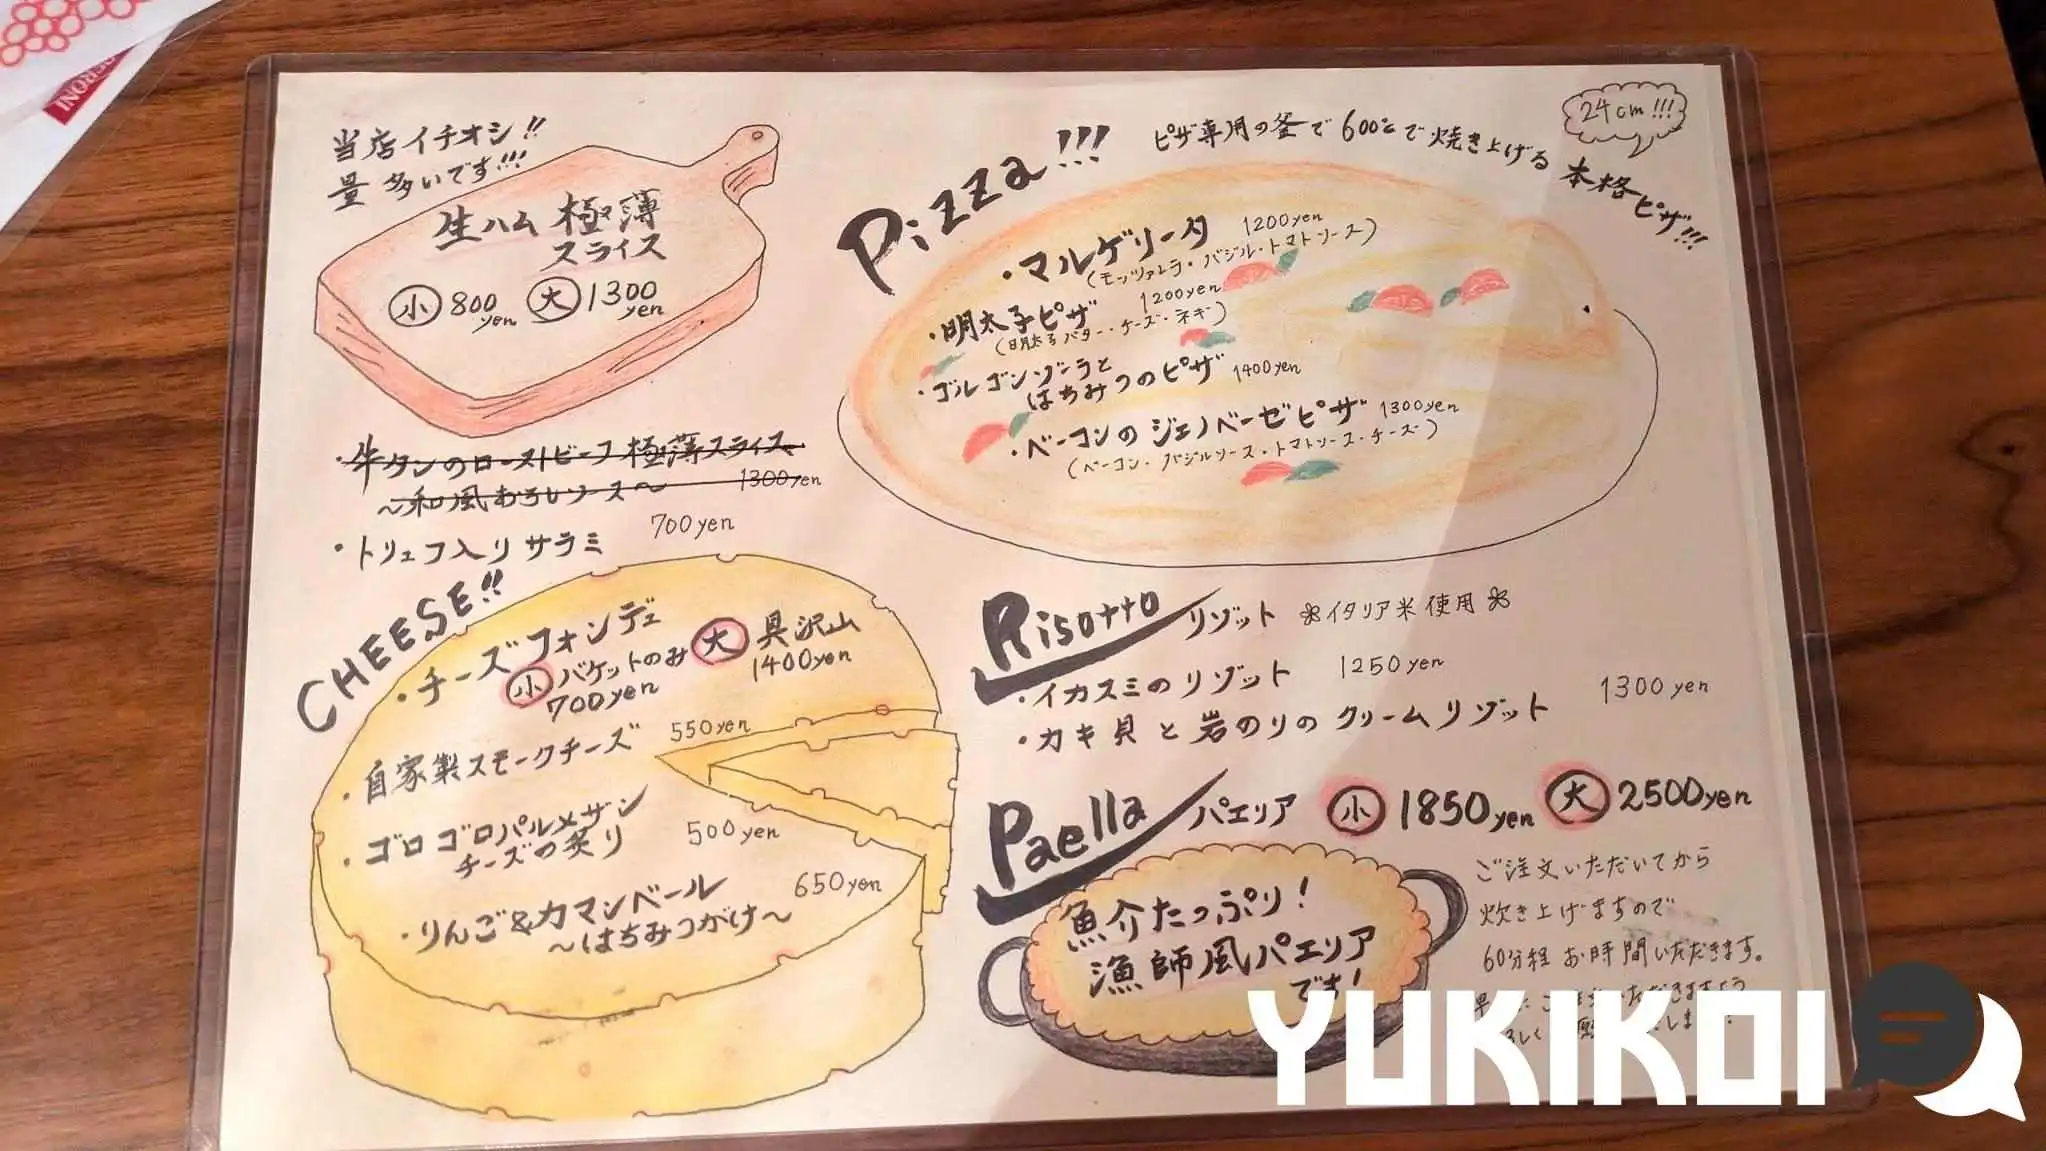 PERONI
当店イチオシ!!
量多いです!!!
生ハム 極薄
スライス
小 800yen 大 1300yen
・牛タンのローストビーフ 極薄スライス
〜和風おろしソース〜 1300yen
・トリュフ入りサラミ 700yen
CHEESE!!
・チーズフォンデュ
小 バケットのみ 700yen 大 具沢山 1400yen
・自家製スモークチーズ 550yen
・ゴロゴロパルメザン
チーズの炙り 500yen
・りんご&カマンベール 650yen
〜はちみつがけ〜
Pizza!!!
ピザ専用の釜で600℃で焼き上げる本格ピザ!!!
24cm!!!
・マルゲリータ 1200yen
(モッツァレラ・バジル・トマトソース)
・明太子ピザ 1200yen
(明太子バター・チーズ・ネギ)
・ゴルゴンゾーラと
はちみつのピザ 1400yen
・ベーコンのジェノベーゼピザ 1300yen
(ベーコン・バジルソース・トマトソース・チーズ)
Risotto リゾット イタリア米使用
・イカスミのリゾット 1250yen
・カキ貝と岩のりのクリームリゾット 1300yen
Paella パエリア 小 1850yen 大 2500yen
魚介たっぷり!
漁師風パエリア
です!
ご注文いただいてから
炊き上げますので
60分程お時間いただきます。
YUKIKOI